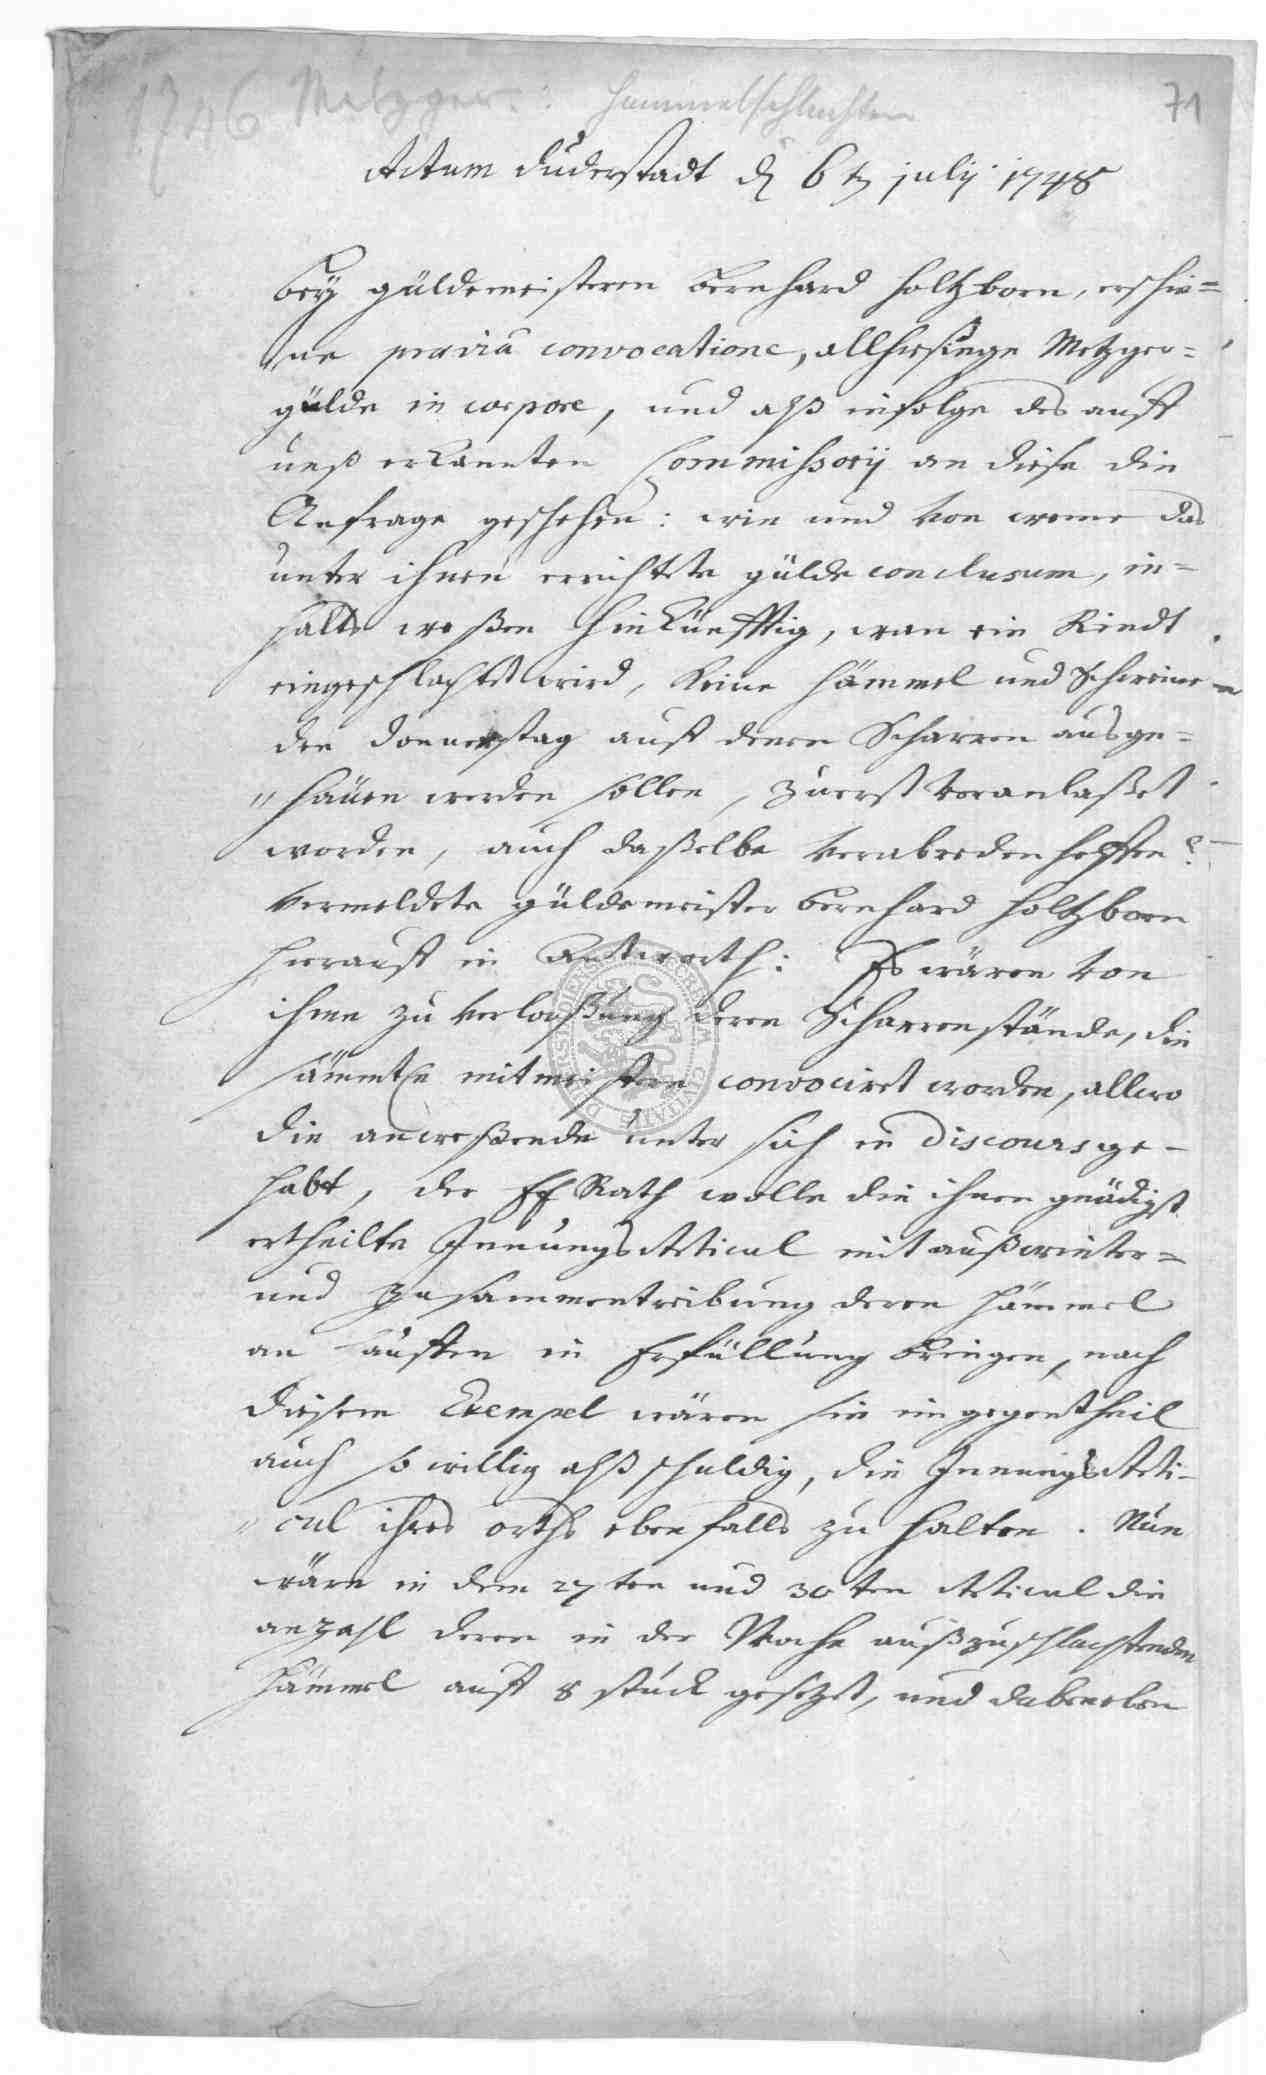 1746 Metzger: Hammelschlachten 71
Actum Duderstadt d 6t july 1748
bey güldemeisteren Bernhard Holtzborn, erschie=
ne praevia convocatione, allhiesiege Metzger=
gülde in corpore, und alß infolge des auff
unß erkannten Commissorij an diese die
Anfrage geschehen: wie und von weme das
unter ihnen errichtete gülde conclusum, in=
halts weßen hinkünfftig, wan ein Rindt
eingeschlachtet wird, keine Hämmel und Schweine
den Donnerstag auff denen Scharren ausge=
"hauen werden sollen, zuerst veranlaßet
worden, auch daßelbe verabreden helffen?
Vermeldete güldemeister Bernhard Holtzborn
hierauff in Antworth: Es wären von
ihme zu verloßung deren Scharrenstände, die
sämmtl mitmeistere convociret worden, allwo
die anweßende unter sich in Discours ge-
habt, der Rath wolle die ihnen gnädigst
ertheilte Innungs Articul mit außwinter=
und zusammentreibung deren Hämmel
an hauffen in Erfüllung bringen, nach
diesem Exempel wären sie im gegentheil
auch so willig alß schuldig, die Innungs Arti-
"cul ihres orths ebenfalls zu halten. Nun
wäre in dem 27ten und 30ten Articul die
anzahl deren in der Woche außzuschlachtenden
Hämmel auff 8 stück gesetzet, und dabeneben